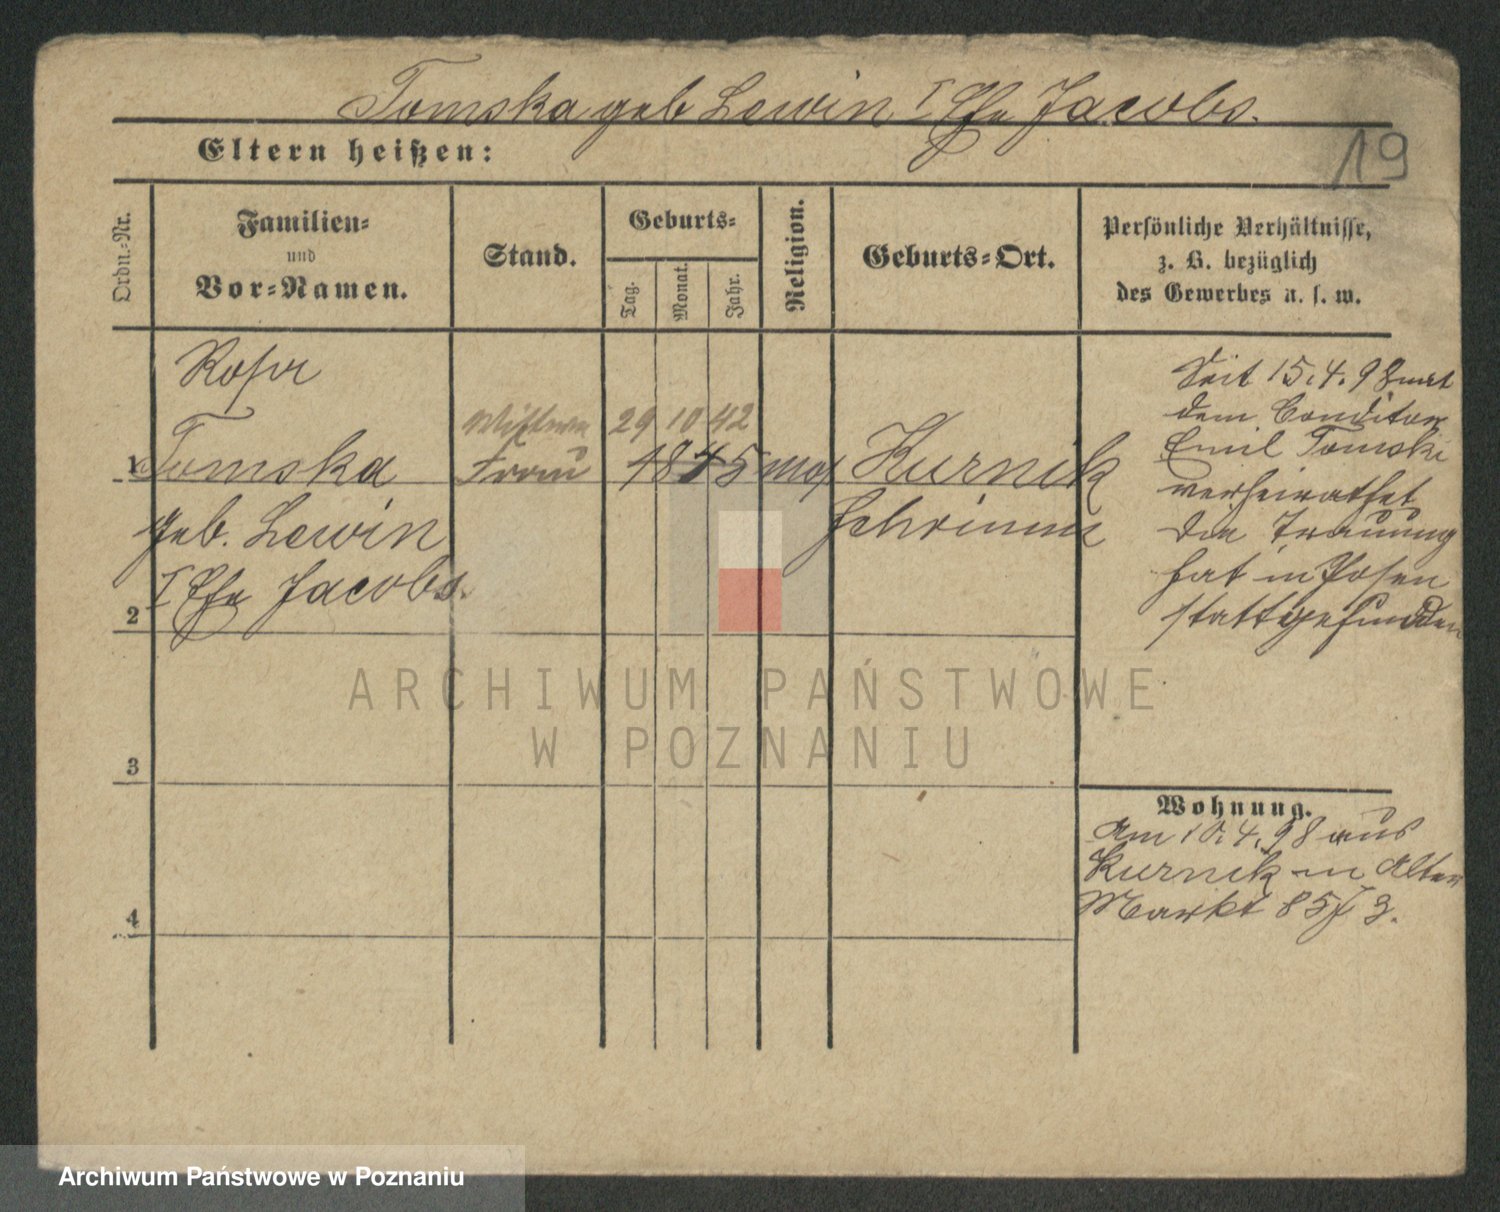 Tomska geb Lewin I Ehe Jacobs.
19
Eltern heißen:
Ordn.=Nr.
Familien=
und
Vor=Namen.
Stand.
Geburts=
Tag.
Monat.
Jahr.
Religion.
Geburts=Ort.
Persönliche Verhältnisse,
z. B. bezüglich
des Gewerbes u. s. w.
Rosa
Wittwe 29 10 42
1 Tomska Frau 1845 mos Kurnik
geb. Lewin Schrimm
I Ehe Jacobs.
2
3
4
Seit 15.4.98 mit
dem Conditor
Emil Tomski
verheirathet
die Trauung
hat in Posen
stattgefunden
Wohnung.
Am 10.4.98 aus
Kurnik in Alter
Markt 85 I 3.
ARCHIWUM PAŃSTWOWE
W POZNANIU
Archiwum Państwowe w Poznaniu